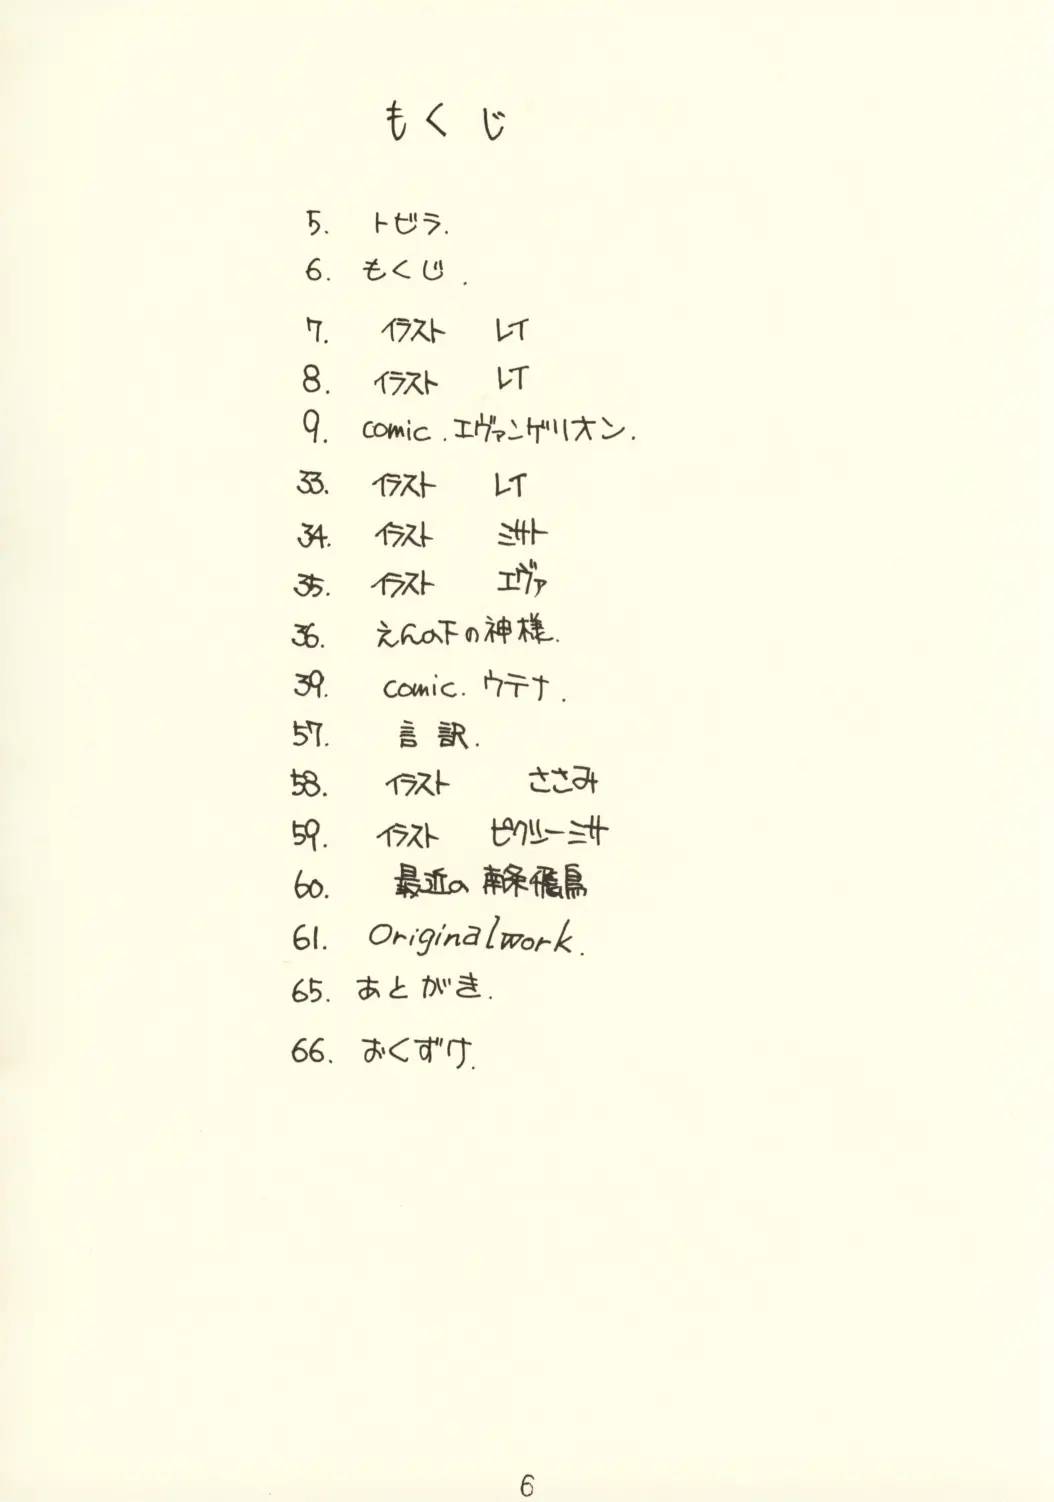 もくじ
5. トビラ.
6. もくじ.
7. イラスト レイ
8. イラスト レイ
9. comic.エヴァンゲリオン.
33. イラスト レイ
34. イラスト ミサト
35. イラスト エヴァ
36. えんの下の神様.
39. comic. ウテナ.
57. 言訳.
58. イラスト ささみ
59. イラスト ピクシーミサ
60. 最近の南条飛鳥
61. Originalwork.
65. あとがき.
66. おくずけ.
6